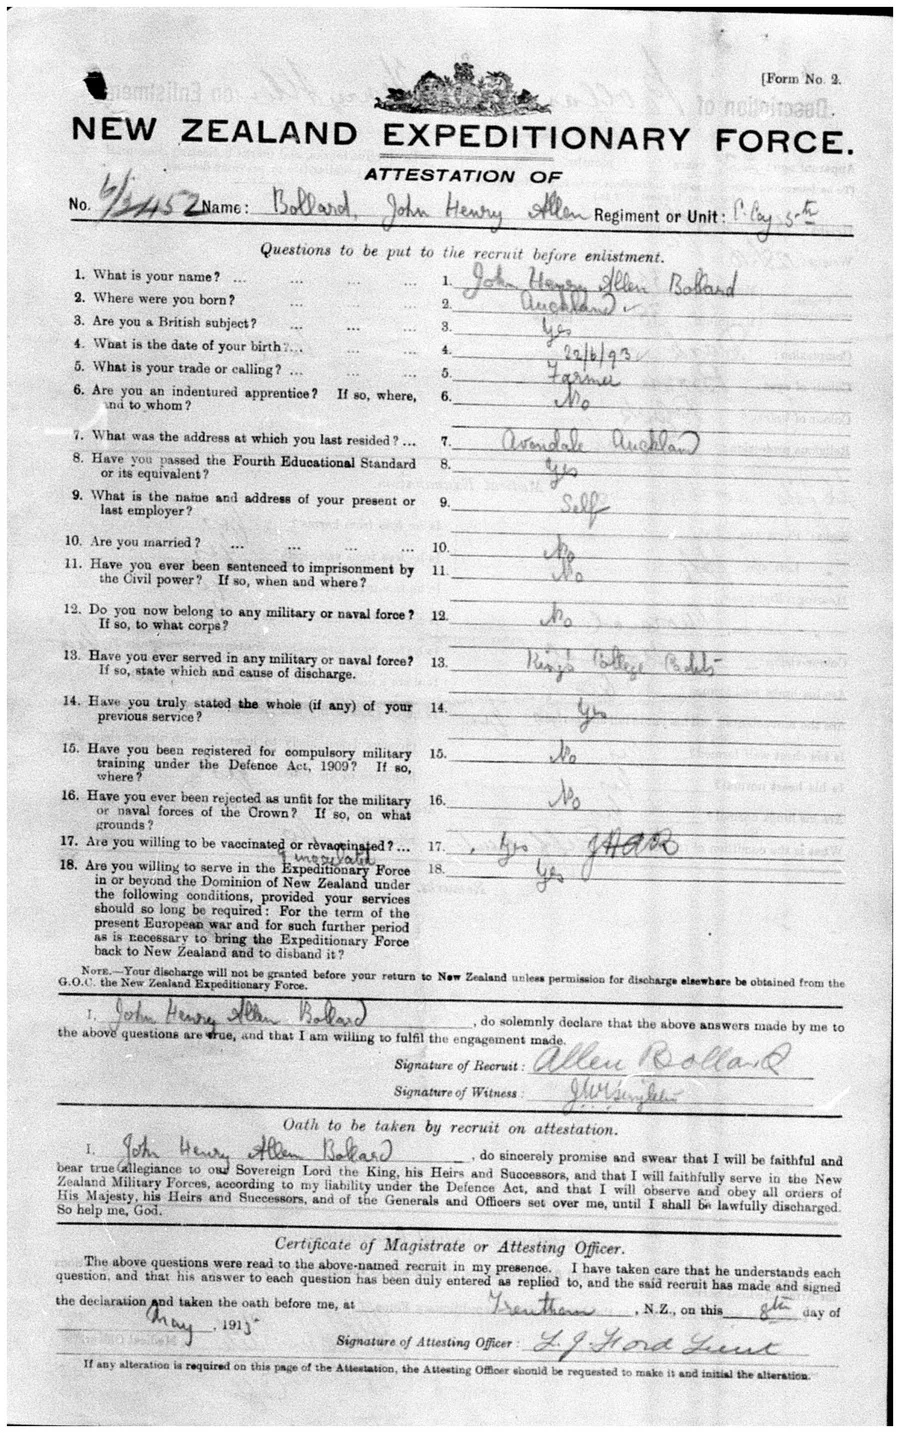 [Form No. 2.
NEW ZEALAND EXPEDITIONARY FORCE.
ATTESTATION OF
No. 6/2452 Name: Bollard, John Henry Allen Regiment or Unit: C. Coy 5th
Questions to be put to the recruit before enlistment.
1. What is your name? ... ... ... 1. John Henry Allen Bollard
2. Where were you born? ... ... 2. Auckland
3. Are you a British subject? ... ... ... 3. Yes
4. What is the date of your birth?... ... ... 4. 22/6/93
5. What is your trade or calling? ... ... ... 5. Farmer
6. Are you an indentured apprentice? If so, where, 6. No
and to whom?
7. What was the address at which you last resided? ... 7. Avondale Auckland
8. Have you passed the Fourth Educational Standard 8. Yes
or its equivalent?
9. What is the name and address of your present or 9. Self
last employer?
10. Are you married? ... ... ... ... 10. No
11. Have you ever been sentenced to imprisonment by 11. No
the Civil power? If so, when and where?
12. Do you now belong to any military or naval force? 12. No
If so, to what corps?
13. Have you ever served in any military or naval force? 13. King's College Cadets
If so, state which and cause of discharge.
14. Have you truly stated the whole (if any) of your 14. Yes
previous service?
15. Have you been registered for compulsory military 15. No
training under the Defence Act, 1909? If so,
where?
16. Have you ever been rejected as unfit for the military 16. No
or naval forces of the Crown? If so, on what
grounds?
17. Are you willing to be vaccinated or revaccinated? ... 17. Yes JHAB
inoculated
18. Are you willing to serve in the Expeditionary Force 18. Yes
in or beyond the Dominion of New Zealand under
the following conditions, provided your services
should so long be required: For the term of the
present European war and for such further period
as is necessary to bring the Expeditionary Force
back to New Zealand and to disband it?
NOTE.—Your discharge will not be granted before your return to New Zealand unless permission for discharge elsewhere be obtained from the
G.O.C. the New Zealand Expeditionary Force.
I, John Henry Allen Bollard, do solemnly declare that the above answers made by me to
the above questions are true, and that I am willing to fulfil the engagement made.
Signature of Recruit: Allen Bollard
Signature of Witness:
Oath to be taken by recruit on attestation.
I, John Henry Allen Bollard, do sincerely promise and swear that I will be faithful and
bear true allegiance to our Sovereign Lord the King, his Heirs and Successors, and that I will faithfully serve in the New
Zealand Military Forces, according to my liability under the Defence Act, and that I will observe and obey all orders of
His Majesty, his Heirs and Successors, and of the Generals and Officers set over me, until I shall be lawfully discharged.
So help me, God.
Certificate of Magistrate or Attesting Officer.
The above questions were read to the above-named recruit in my presence. I have taken care that he understands each
question, and that his answer to each question has been duly entered as replied to, and the said recruit has made and signed
the declaration and taken the oath before me, at Trentham, N.Z., on this 8th day of
May, 1915
Signature of Attesting Officer: L. J. Ford Lieut
If any alteration is required on this page of the Attestation, the Attesting Officer should be requested to make it and initial the alteration.